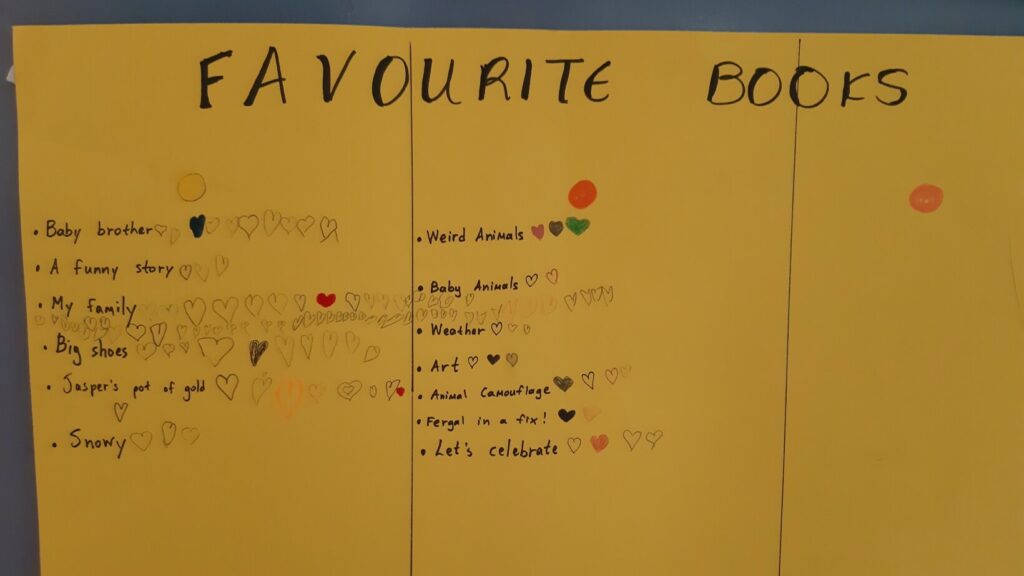 FAVOURITE BOOKS
• Baby brother
• A funny story
• My family
• Big shoes
• Jasper's pot of gold
• Snowy
• Weird Animals
• Baby Animals
• Weather
• Art
• Animal Camouflage
• Fergal in a fix!
• Let's celebrate